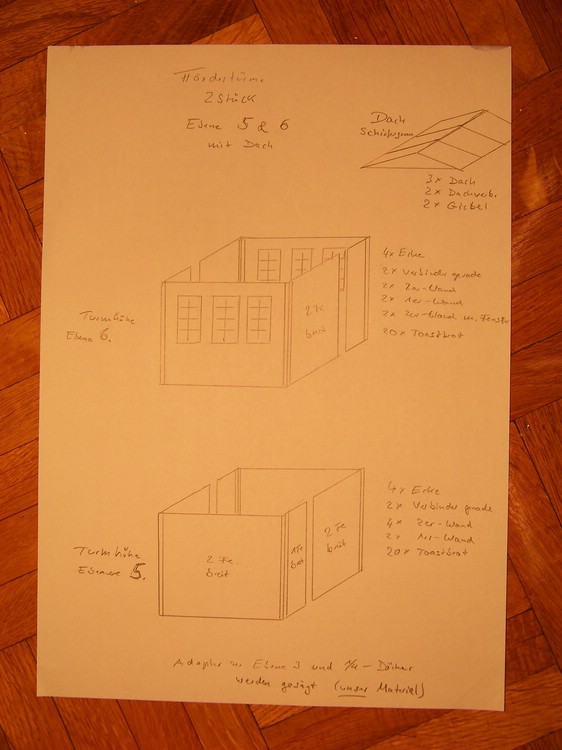 Fördertürme
2 Stück
Ebene 5 & 6
mit Dach
Dach
3x Dach
2x Dachverb.
2x Giebel
4x Ecke
2x Verbinder gerade
2x 2er-Wand
2x 1er-Wand
2x 3er-Wand m. Fenster
20x Toastbrot
2 Fe
breit
Turmhöhe
Ebene 6.
4x Ecke
2x Verbinder gerade
4x 2er-Wand
2x 1er-Wand
20x Toastbrot
2 Fe
breit
1 Fe
breit
2 Fe.
breit
Turmhöhe
Ebene 5.
Adapter zu Ebene 3 und 1/4-Dächer
werden gesägt (unser Material)